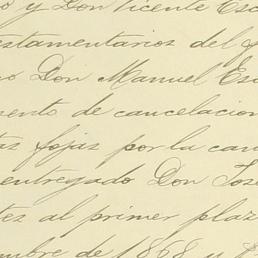 o y Don Vicente Esc
estamentarios del f
no Don Manuel Es
mento de cancelacion
tas fojas por la can
entregado Don José
tes al primer plaz
mbre de 1868 y